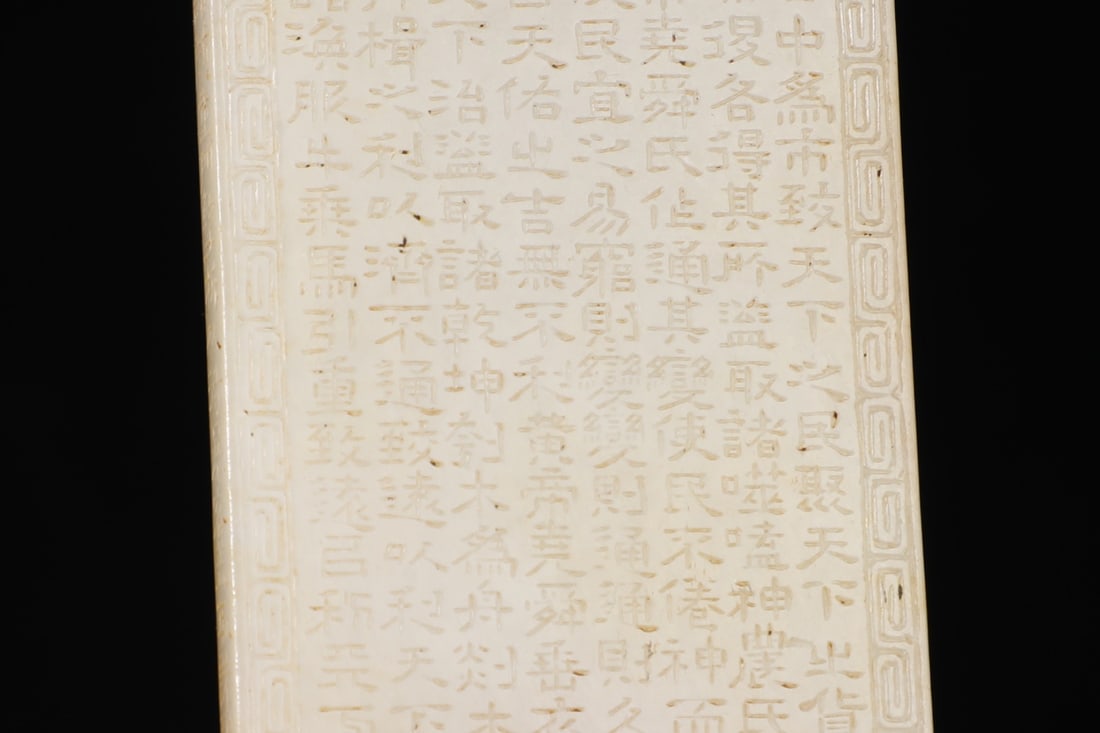 中為市致天下之民聚天下之貨
退各得其所蓋取諸噬嗑神農氏
堯舜氏作通其變使民不倦神而
民宜之易窮則變變則通通則久
天佑之吉無不利黃帝堯舜垂衣
下治蓋取諸乾坤刳木為舟剡木
楫之利以濟不通致遠以利天下
渙服牛乘馬引重致遠以利天下